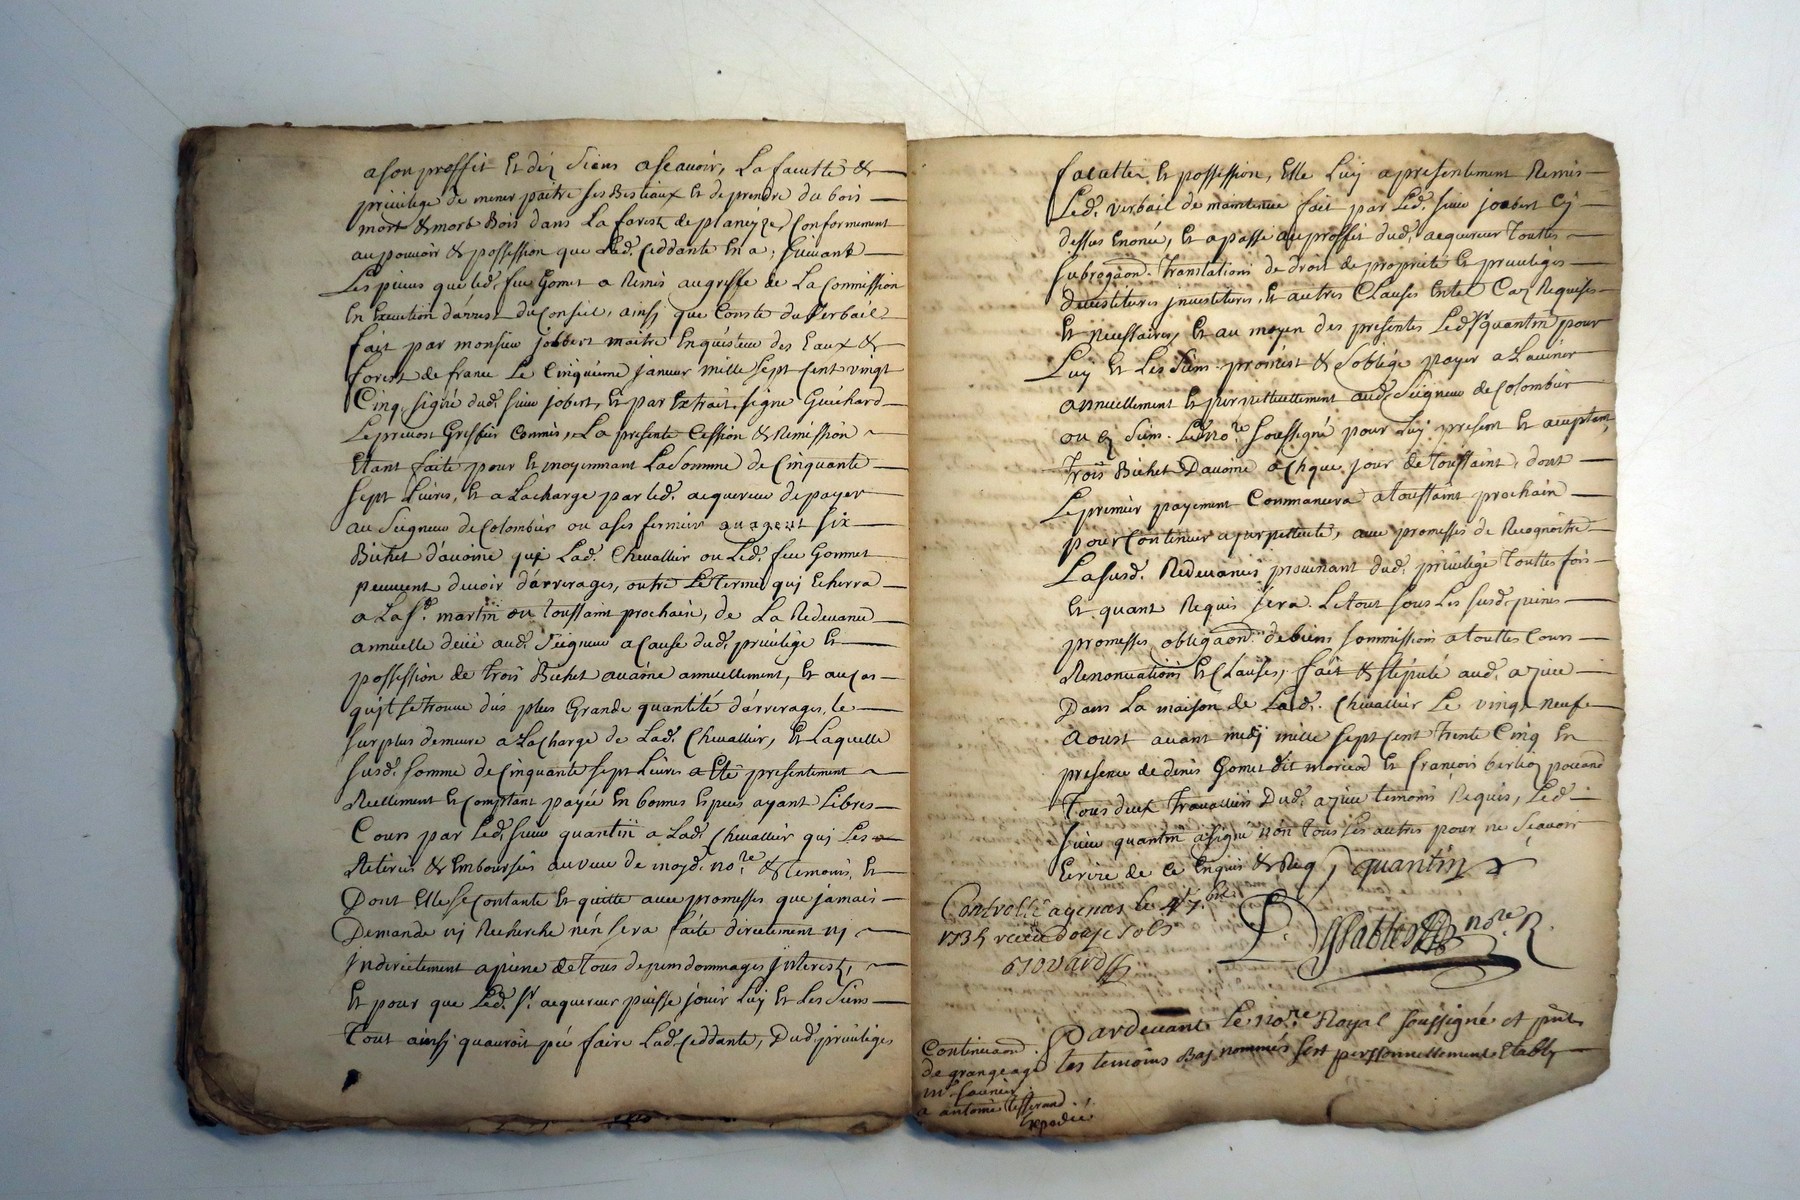 a son proffit Et dez Siens a scavoir, La faculté &
privilege de mener paitre ses Bestiaux Et de prendre du bois
mort & mort Bois dans La forest de planeyze, Conformement
au pouvoir & possession que Lad. Ceddante En a, Suivant
Les pieces que led. feu Gomet a Remis au greffe de La Commission
En Execution d'arrest du Conseil, ainsy que Conste du Verbail
fait par monsieur jobbert maitre Enquesteur des Eaux &
forest de france Le Cinquieme janvier mille Sept Cent vingt
Cinq, signé dud. Sieur jobert, Et par Extrait signe Guichard
Leprevost Greffier Commis, La presente Cession & Remission
Etant faite pour Et moyennant La Somme de Cinquante
Sept Livres, Et a La charge par led. acquereur de payer
au Seigneur de Colombier ou a ses fermiers six
Bichet d'avoine que Lad. Chevallier ou Led. feu Gommet
peuvent devoir d'arrerages, outre Le Terme qui Echerra
a La St. martin ou Toussaint prochain, de La Redevance
annuelle deüe aud. Seigneur a Cause dud. privilege Et
possession de trois Bichet avoine annuellement, Et au cas
quil se trouve dus plus Grande quantité d'arrerages, le
surplus demeure a La charge de Lad. Chevallier, Et Laquelle
susd. somme de Cinquante Sept Livres a Eté presentement
Reellement Et Comptant payée En bonnes Especes ayant Libres
Cours par Led. Sieur quantin a Lad. Chevallier qui Les a
Retirés & Emboursés au veu de moyd. nore & temoins, Et
Dont Elle se Contante Et quitte avec promesses que jamais
Demande ny Recherche n'en sera faite directement ny
Indirectement a peine de tous depens dommages Interest,
Et pour que Led. Sr. acquereur puisse jouir Luy Et Les Siens
Tout ainsy quauroit peu faire Lad. Ceddante, Dud. privileges
facultez Et possession, Elle Luy a presentement Remis
Led. Verbail de maintenue fait par Led. Sieur joubert Cy
dessus Enoncé, Et a passé au proffit dud. acquereur Touttes
subrogaôn. Translations de droit de propriété Et privileges
devestitures investitures, Et autres Clauses En tel Caz Requises
Et necessaires, Et au moyen des presentes Led. Sr quantin pour
Luy Et Les Siens promest & s'oblige payer a L'avenir
annuellement Et perpettuellement aud. Seigneur de Colombier
ou ez Siens. Led. nore soussigné pour Luy present Et acceptant,
Trois Bichet D'avoine a chque jour de Toussaint, dont
Le premier payement Commancera a toussaint prochain
pour Continuer a perpettuité, avec promesses de Recognoitre
La susd. Redevances provenant dud. privilege Touttes fois
Et quant Requis sera. Le tout sous Les susd. peines
promesses obligaôn. de biens sommissions a touttes Cours
Renonciations Et Clauses, fait & stipulé aud. azieu
Dans La maison de Lad. Chevallier Le vingt neuf
Aoust avant midy mille sept Cent Trente Cinq En
presence de denis Gomet dit et françois berlioz
Tous deux Travailleurs Dud. azieu temoins Requis, Led.
Sieur quantin a signé non Tous Les autres pour ne sçavoir
Ecrire de ce Enquis & Req, quantin
Controllé a genas le 4e 7.bre
1735 receu douze sols
nore R.
Pardevant le nore Royal soussigné et pnts
Les temoins Bas nommés sest personnellement Etably
Continuaôn
de grangeage
mr
a antoine tisserand.
Expediée